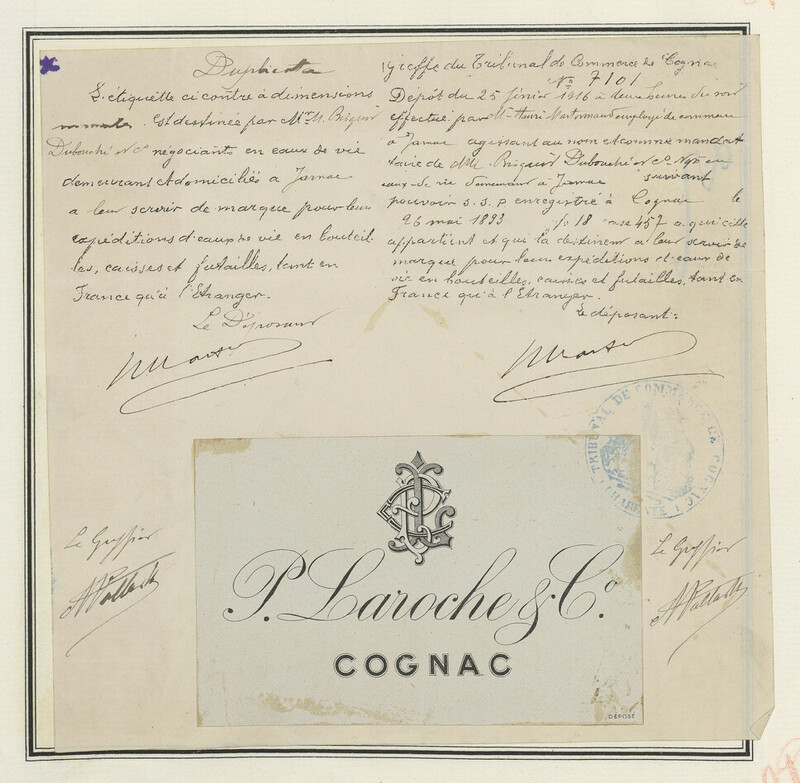 Duplicata
L'étiquette ci contre à dimensions
est destinée par M.M. Brisquin
Dubouché et Cº négociants en eaux de vie
demeurant et domiciliés à Jarnac
a leur servir de marque pour leur
expéditions d'eaux de vie en bouteil-
les, caisses et futailles, tant en
France qu'à l'Etranger.
Le Déposant
Greffe du Tribunal de Commerce de Cognac
Nº 7101
Dépôt du 25 février 1916 à deux heures du soir
effectué par M. Henri employé de commerce
à Jarnac agissant au nom et comme manda
taire de MM. Dubouché et Cº Ngts en
eaux-de-vie demeurant à Jarnac suivant
pouvoir s.s.p enregistré à Cognac le
26 mai 1893 fº 18 case 457 a qui elle
appartient et qui la destinent a leur servir de
marque pour leurs expéditions d'eaux de
vie en bouteilles, caisses et futailles, tant en
France qu'à l'Etranger.
Le déposant:
TRIBUNAL DE COMMERCE DE COGNAC
(CHARENTE)
Le Greffier
Le Greffier
P. Laroche & Cº.
COGNAC
DÉPOSÉ